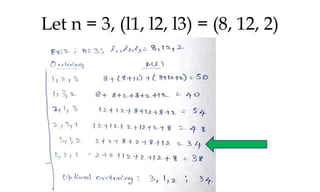 Let n = 3, (l1, l2, l3) = (8, 12, 2)
n=3; = 8,12,2
Ordering
1,2,3 8+(8+12)+(8+12+2) = 50
1,3,2 8+ 8+2+8+2+12 = 40
2,1,3 12+12+8+12+8+2 = 54
2,3,1 12+12+2+12+2+8 = 48
3,1,2 2+2+8+2+8+12 = 34
3,2,1 2+2+12+2+12+8 = 38
Optimal ordering : 3,1,2 ; 34